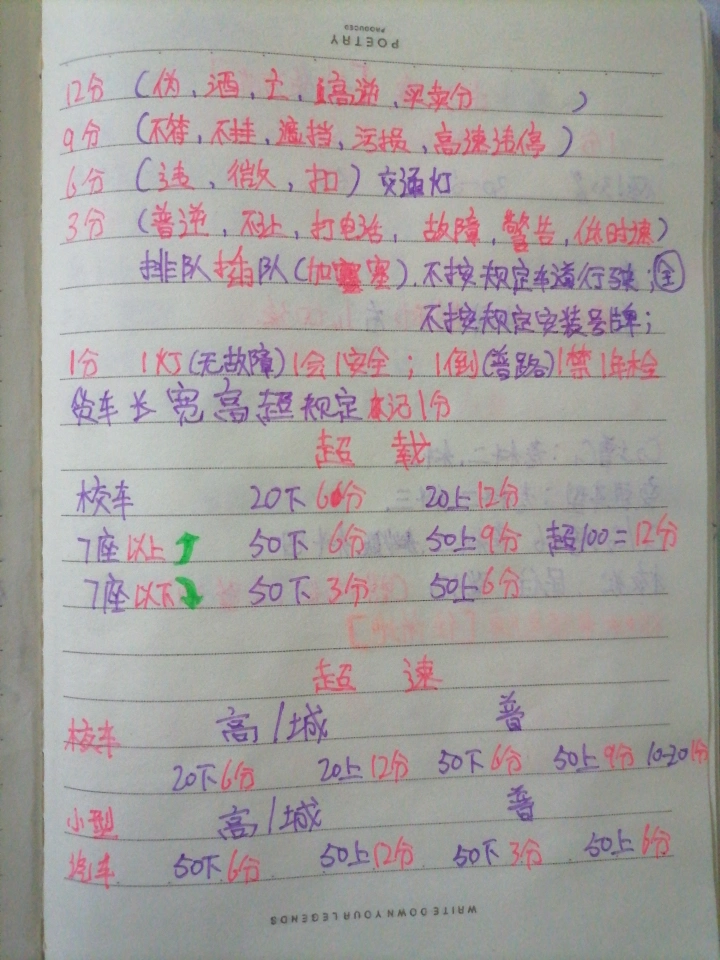 POETRY
PRODUCED
12分 (伪、酒、亡、高逆、买卖分 )
9分 (不符、不挂、遮挡、污损、高速违停)
6分 (违、微、扣) 交通灯
3分 (普逆、不让、打电话、故障、警告、低时速)
排队插队(加塞), 不按规定车道行驶;全
不按规定安装号牌;
1分 1灯(无故障)1会1安全; 1倒(普路)1禁1年检
货车长宽高超规定 记1分
超 载
校车 20下6分 20上12分
7座以上 50下6分 50上9分 超100=12分
7座以下 50下3分 50上6分
超 速
校车 高/城 普
20下6分 20上12分 50下6分 50上9分 10-20 1分
小型 高/城 普
汽车 50下6分 50上12分 50下3分 50上6分
WRITE DOWN YOUR LEGENDS